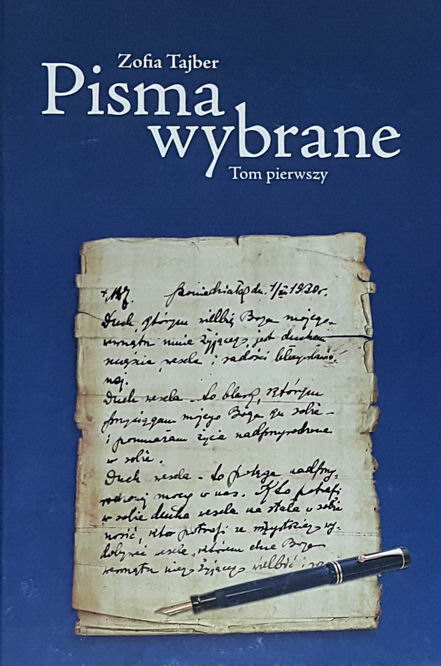 Zofia Tajber
Pisma
wybrane
Tom pierwszy
Poniedziałek dn. 1/III 1920r.
Duch, którym wielbię Boga mojego
wewnątrz mnie żyjącego, jest duchem
męstwa, wesela i radości
Duch wesela - to blask, którym
przyciągam mojego Boga ku sobie -
i pomnażam życie nadprzyrodzone
w sobie.
Duch wesela - to potęga nadprzy-
rodzonej mocy w nas. Kto potrafi
w sobie ducha wesela na stałe w sobie
nosić, kto potrafi ze wszystkiego wy-
wesele, którem chce Boga
wewnątrz niego żyjącego wielbić